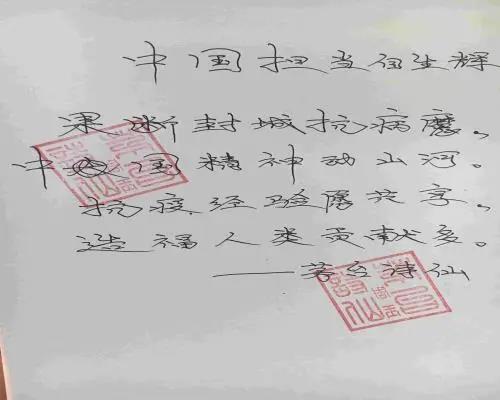 中国担当自生辉
果断封城抗病魔，
中国精神动山河。
抗疫经验愿共享，
造福人类贡献多。
——芳台诗仙